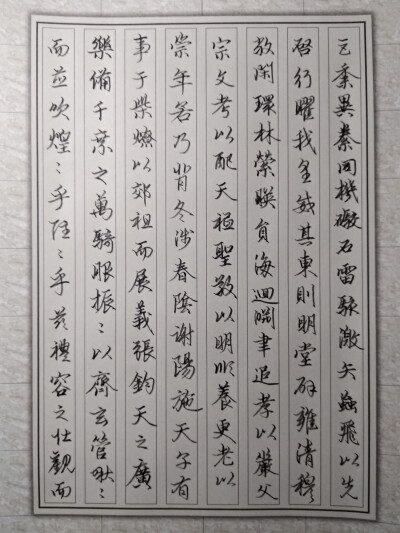 巨黍異絭同機礮石雷駭激矢蝱飛以先
啓行曜我皇威其東則明堂辟雍清穆
敞閑環林縈暎員海迴淵聿追孝以嚴父
宗文考以配天祗聖敬以明順養更老以
崇年若乃背冬涉春陰謝陽施天子有
事于柴燎以郊祖而展義張鈞天之廣
樂備千乘之萬騎服振〻以齊玄管啾〻
而並吹煌〻乎隱〻乎茲禮容之壯觀而